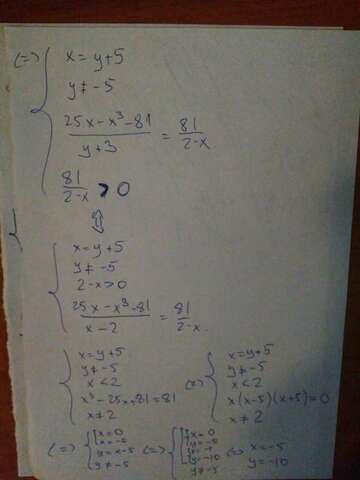 (=>) { x = y+5
y ≠ -5
(25x - x³ - 81)/(y+3) = 81/(2-x)
81/(2-x) > 0
⇕
{ x = y+5
y ≠ -5
2-x>0
(25x - x³ - 81)/(x-2) = 81/(2-x)
{ x = y+5
y ≠ -5
x < 2
x³ - 25x + 81 = 81
x ≠ 2
(=>) { x = y+5
y ≠ -5
x < 2
x(x-5)(x+5) = 0
x ≠ 2
(=>) { [ x = 0
x = -5
y = x-5
y ≠ -5
(=>) { [ { x = 0
y = -5
{ x = -5
y = -10
y ≠ -5
(=> x = -5
y = -10